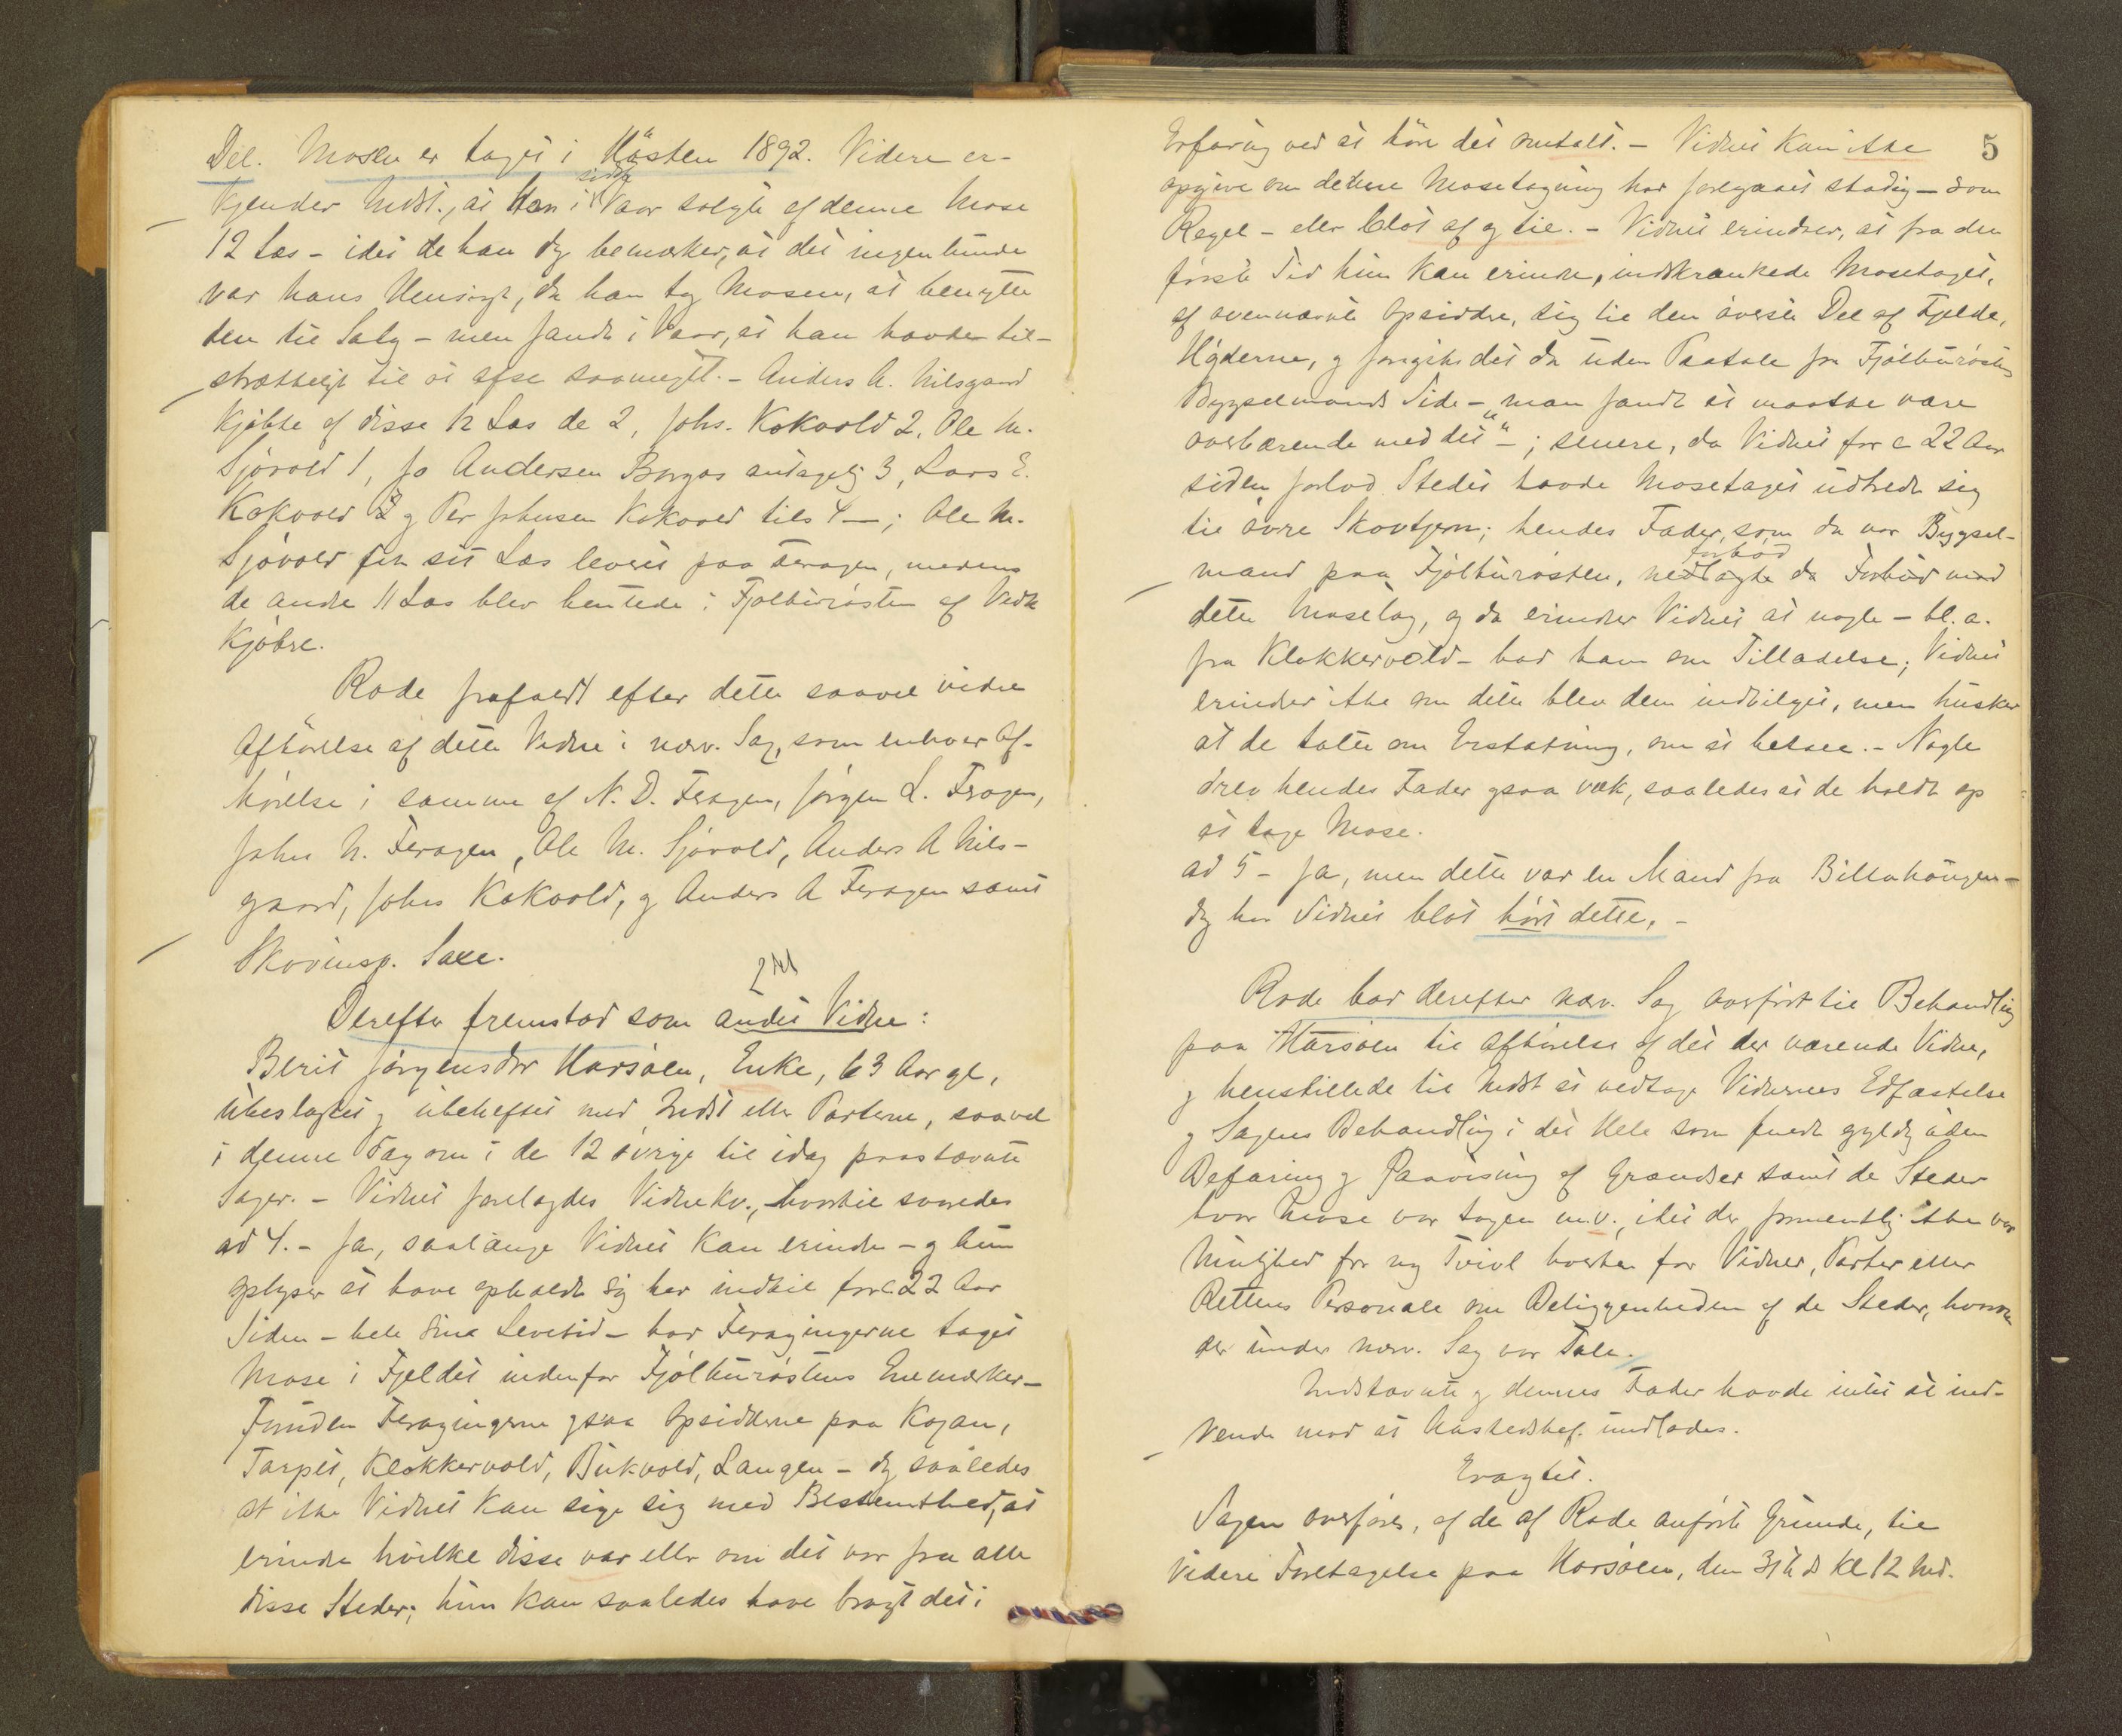 Del. Mosen er taget i Høsten 1892. Videre er-
kjender Indst., at han i sidste Vaar solgte af denne Mose
12 Læs - idet de han dog bemærker, at det ingenlunde
var hans Hensigt, da han tog Mosen, at benytte
den til Salg - men fandt i Vaar, at han havde til-
strækkeligt til at afse saameget. - Anders A. Nilsgaard
kjøbte af disse 12 Læs de 2, Johs. Kokvold 2, Ole M.
Sjøvold 1, Jo Andersen Borgos antagelig 3, Lars E.
Kokvold og Per Johnsen Kokvold tils 4 -; Ole M.
Sjøvold fik sit Læs leveret paa Feragen, medens
de andre 11 Læs blev hentede i Fjølburøsten af Vedk
Kjøbere.
Rode frafaldt efter dette saavel videre
Afhørelse af dette Vidne i nærv. Sag, som enhver Af-
hørelse i samme af N. D. Feragen, Jørgen L. Feragen,
John N. Feragen, Ole M. Sjøvold, Anders A Nils-
gaard, Johs Kokvold, og Anders A Feragen samt
Skovinsp. Saxe.
2det
Derefter fremstod som andet Vidne:
Berit Jørgensdtr Harsøen, Enke, 63 Aar gl,
ubeslægtet og ubeheftet med Indst eller Parterne, saavel
i denne Sag om i de 12 øvrige til idag paastævnte
Sager. - Vidnet forelagdes Vidnekv., hvortil svaredes
ad 4. - Ja, saalænge Vidnet kan erindre - og hun
oplyser at have opholdt sig her indtil for c 22 Aar
siden - hele sine Levetid - har Feragingerne taget
Mose i Fjeldet indenfor Fjølburøstens Enemærker -
Foruden Feragingerne ogsaa Opsidderne paa Kojan,
Tarpet, Klokkervold, Bukvold, Langen - dog saaledes
at ikke Vidnet kan sige sig med Bestemthed, at
erindre hvilke disse var eller om det var fra alle
disse Steder; hun kan saaledes have bragt det i
5
Erfaring ved at høre det omtalt. - Vidnet kan ikke
opgive om denne Mosetagning har foregaaet stadig - som
Regel - eller blot af og til. - Vidnet erindrer, at fra den
første Tid hun kan erindre, indskrænkede Mosetaget,
af ovennævnte Opsiddere, sig til den øverste Del af Fjelde,
Høiderne, og foregik det da uden Paatale fra Fjølburøstens
Bygselmands Side - "man fandt at maatte være
overbærende med det" -; senere, da Vidnet for c 22 Aar
siden forlod Stedet havde Mosetaget udbredt sig
til øvre Skovtjern; hendes Fader, som da var Bygsel-
mand paa Fjølburøsten, nedlagde da Forbud mod
forbød
dette Mosetag, og da erindrer Vidnet at nogle - bl. a.
fra Klokkervold - bad ham om Tilladelse; Vidnet
erindrer ikke om dette blev dem indvilget, men husker
at de talte om Erstatning, om at betale. - Nogle
drev hendes Fader ogsaa væk, saaledes at de holdt op
at tage Mose.
ad 5 - Ja, men dette var en Mand fra Billahaugen -
dog har Vidnet blot hørt dette. -
Rode bad derefter nærv. Sag overført til Behandling
paa Harsøen til Afhørelse af det der værende Vidne,
og henstillede til Indst at vedtage Vidnernes Edfæstelse
og Sagens Behandling i det Hele som fuldt gyldig uden
Befaring og Paavisning af Grændser samt de Steder
hvor Mose var tagen m.v., idet der formentlig ikke var
Mulighed for nog Tvivl hverken for Vidner, Parter eller
Rettens Personale om Beliggenheden af de Steder, hvorom
der under nærv. Sag var Tale.
Indstævnte og dennes Fader havde intet at ind-
vende mod at Aastedsbef. undlades.
Eragtet.
Sagen overføres, af de af Rode anførte Grunde, til
videre Foretagelse paa Harsøen, den 31te ds Kl 12 Md.